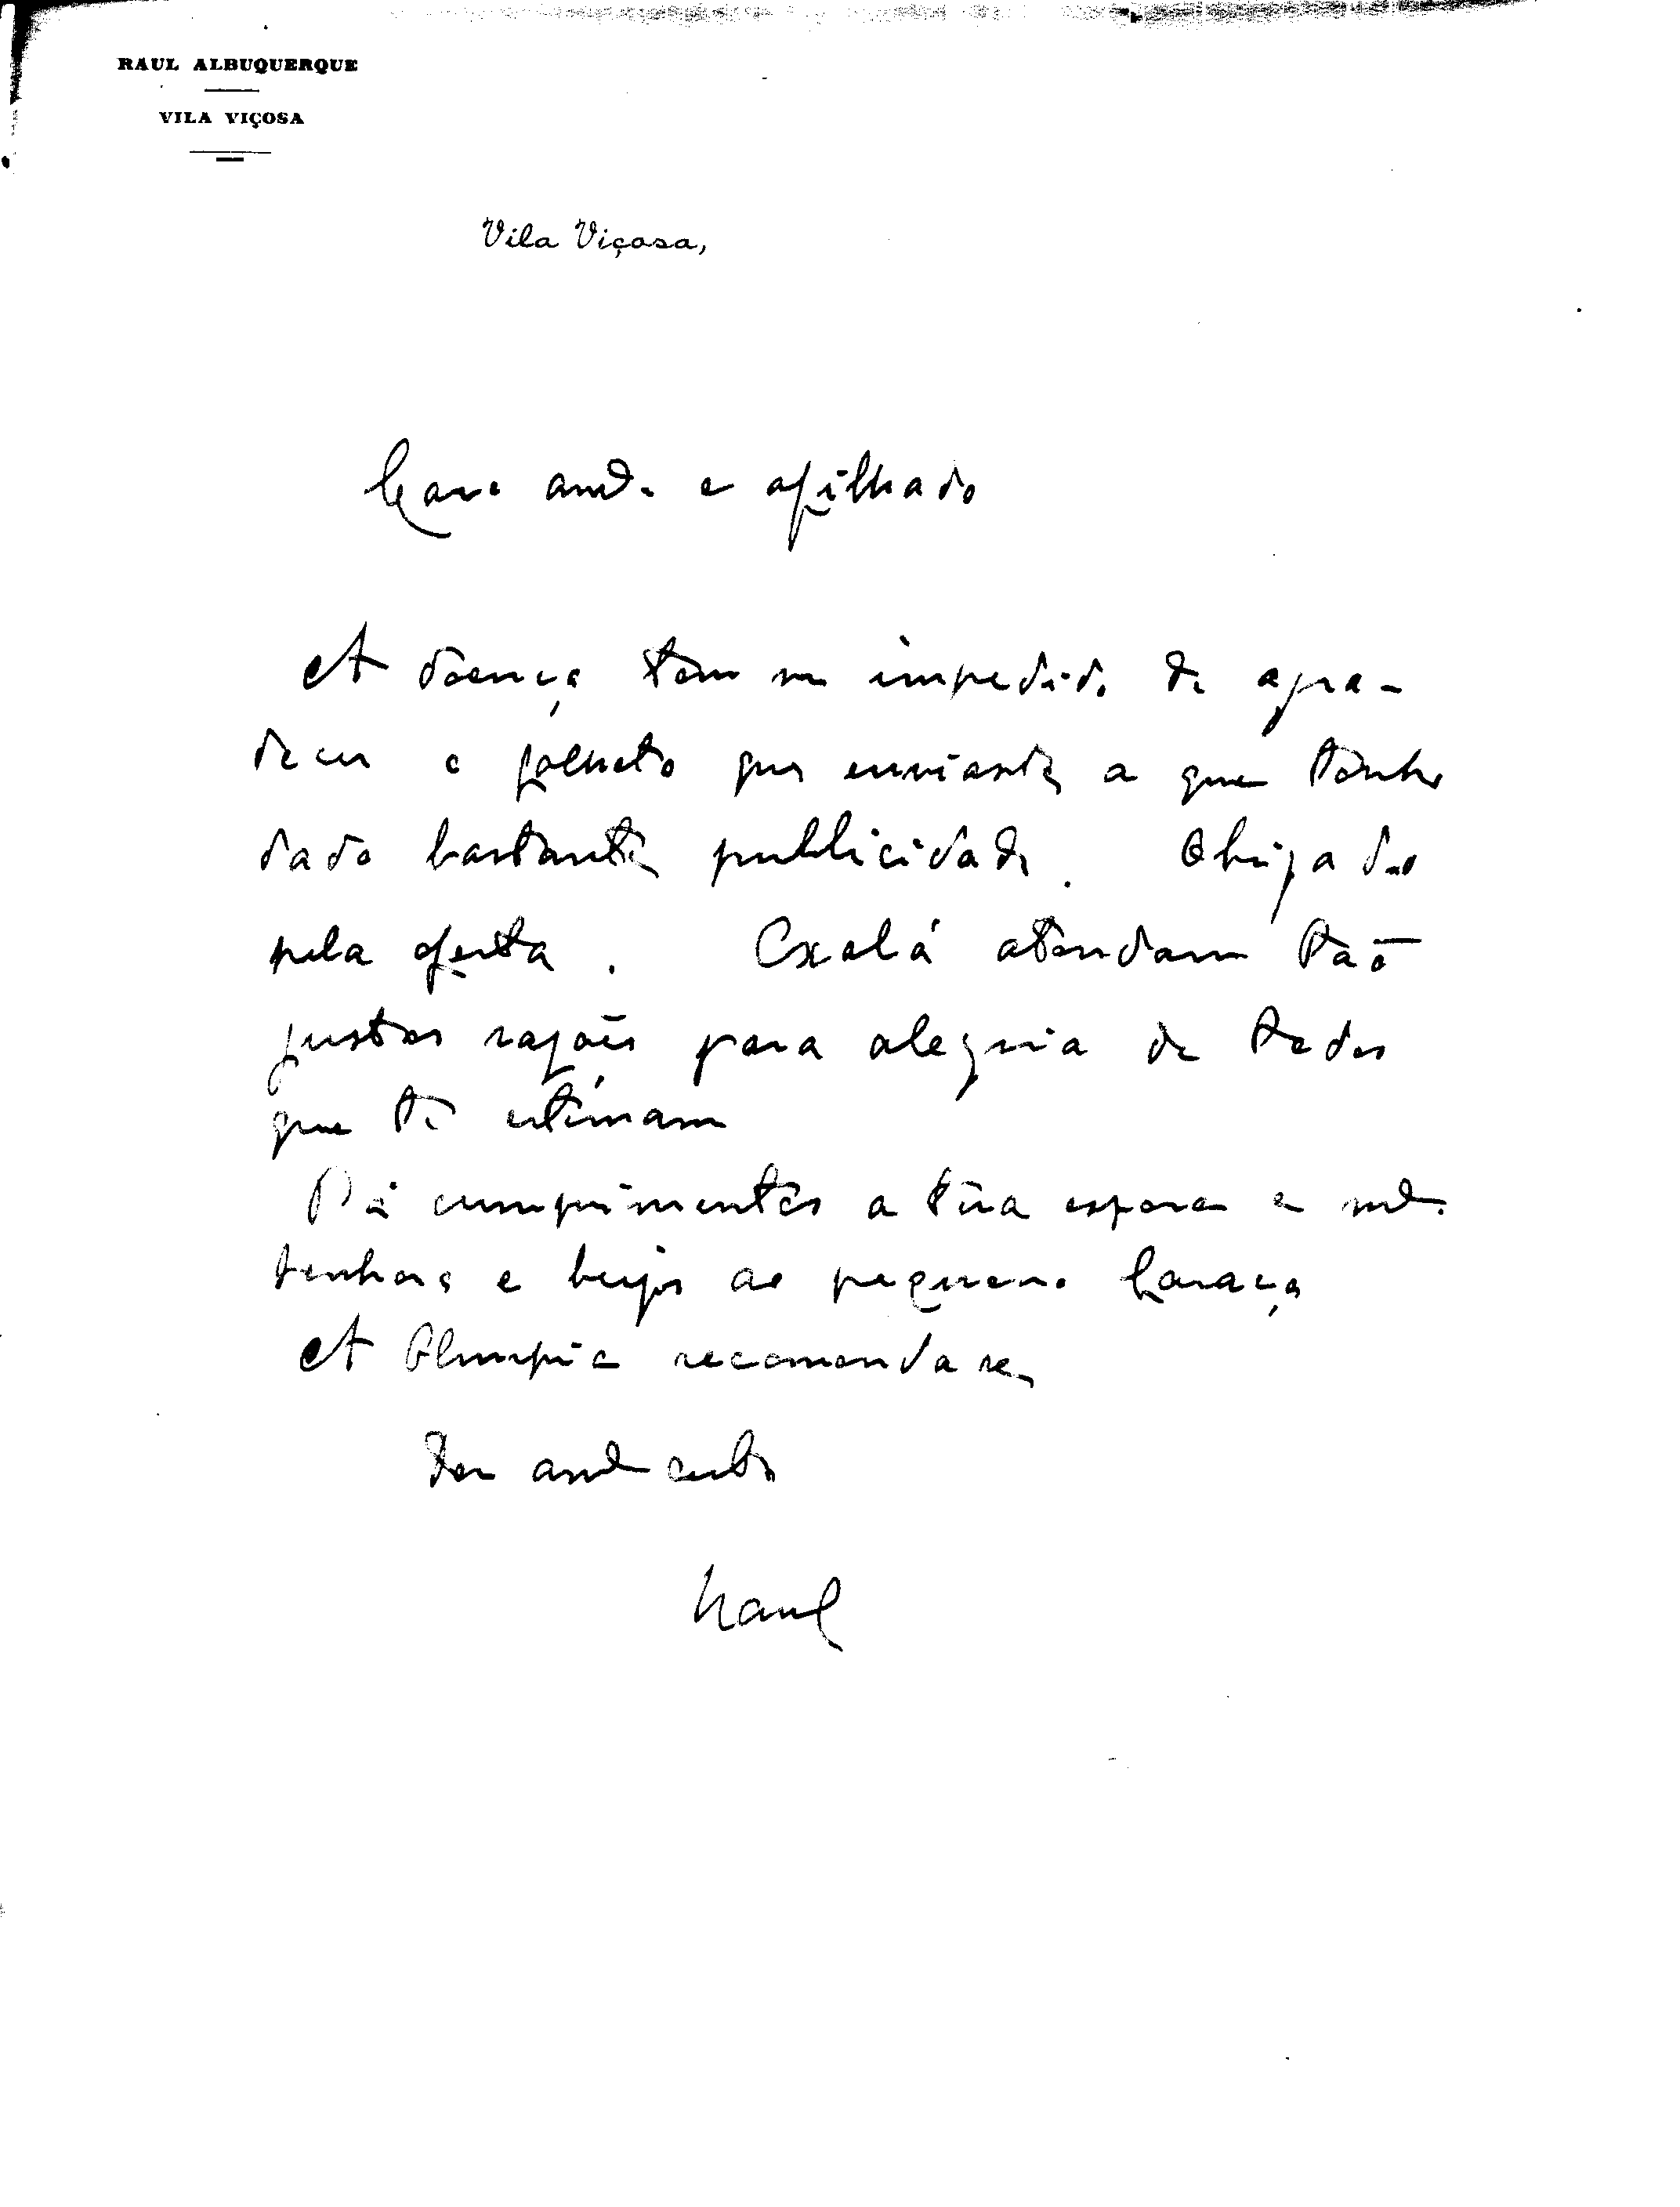 RAUL ALBUQUERQUE
VILA VIÇOSA
Vila Viçosa,
Caro amº. e afilhado
A doença tem me impedido de agra-
decer o folheto que enviaste a que tenho
dado bastante publicidade. Obrigado
pela oferta. Oxalá atendam tão
justas razões para alegria de todos
que te estimam
Dá cumprimentos a tua esposa e
senhora e beijos ao pequeno Caraça
A Olimpia recomenda se,
Teu amº certo
Raul